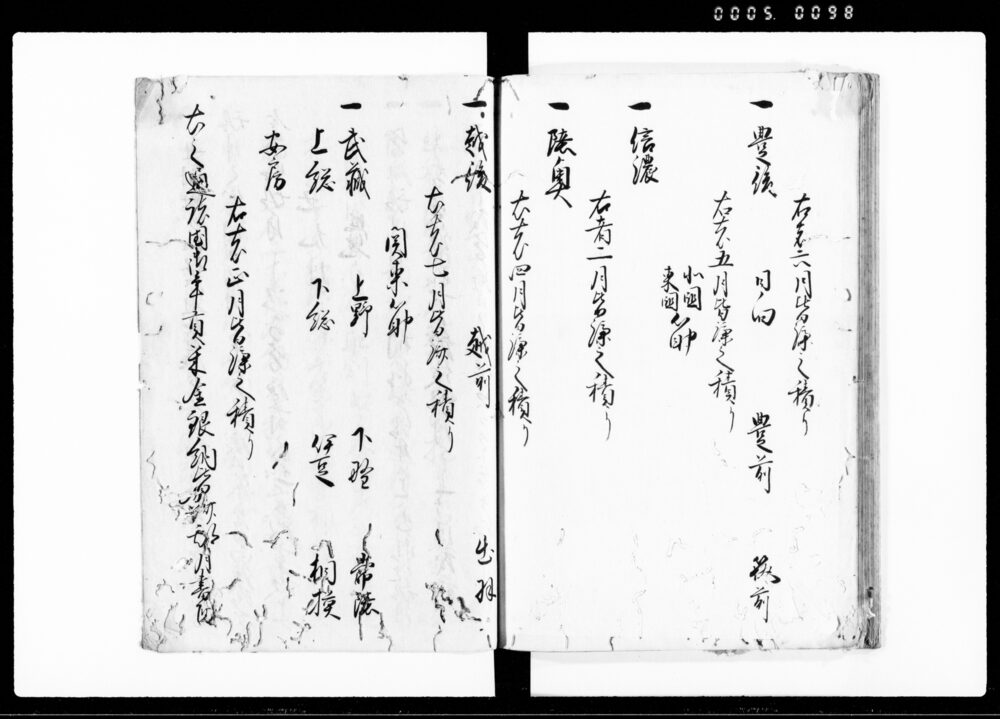 0005. 0098
右者六月皆済之積り
一 豊後 日向 豊前 筑前
右者五月皆済之積り
北国
東国筋
一 信濃
右者二月皆済之積り
一 陸奥
右者四月皆済之積り
一 越後 越前 出羽
右者七月皆済之積り
関東筋
一 武蔵 上野 下野 常陸
上総 下総 伊豆 相模
安房
右者正月皆済之積り
右之通諸国御年貢米金銀納皆済月書付